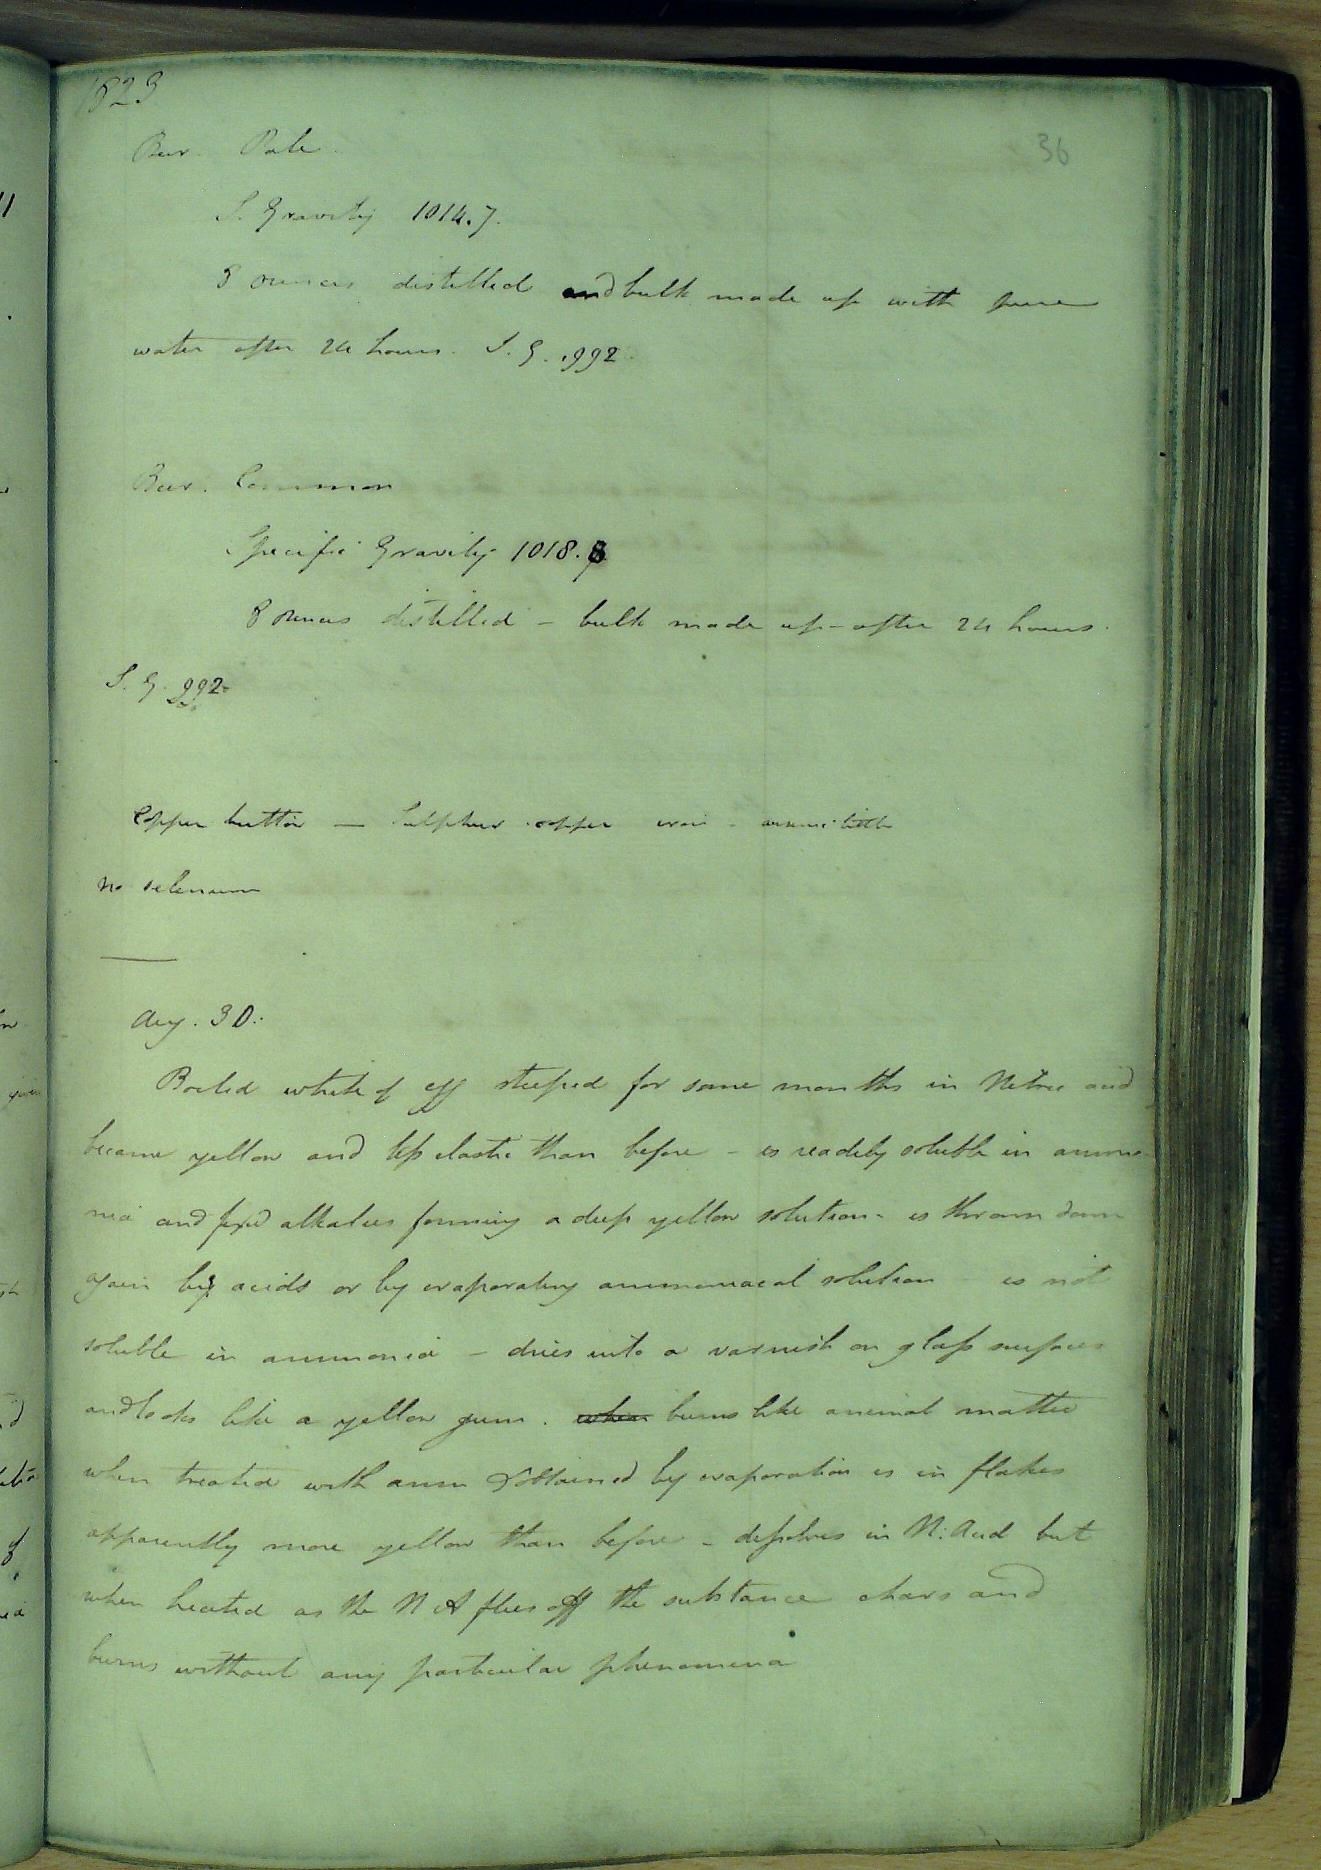 1823
36
Beer. Pale.
S. Gravity 1014.7.
8 ounces distilled and bulk made up with pure
water after 24 hours. S. G. .992.
Beer. Common
Specific Gravity 1018.
8 ounces distilled - bulk made up - after 24 hours.
S. G. 992.
Copper button — Sulphur copper iron - arsenic little
no selenium
Aug. 30.
Boiled white of egg steeped for some months in Nitric acid
became yellow and less elastic than before - is readily soluble in ammo-
nia and fixed alkalies forming a deep yellow solution - is thrown down
again by acids or by evaporating ammoniacal solution is not
soluble in ammonia - dries into a varnish on glass surfaces
and looks like a yellow gum. when burns like animal matter
when treated with amm & obtained by evaporation is in flakes
apparently more yellow than before - dissolves in N: Acid but
when heated as the N A flies off the substance chars and
burns without any particular phenomena